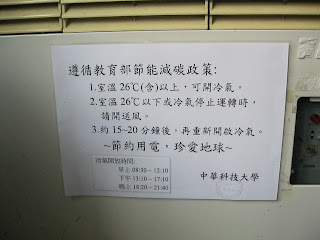 遵循教育部節能減碳政策:
1.室溫 26℃(含)以上，可開冷氣。
2.室溫 26℃以下或冷氣停止運轉時，
請開送風。
3.約 15~20 分鐘後，再重新開啟冷氣。
~節約用電，珍愛地球~
冷氣開放時間:
早上 08:30 ~ 12:10
下午 13:10 ~ 17:10
晚上 18:20 ~ 21:40
中華科技大學